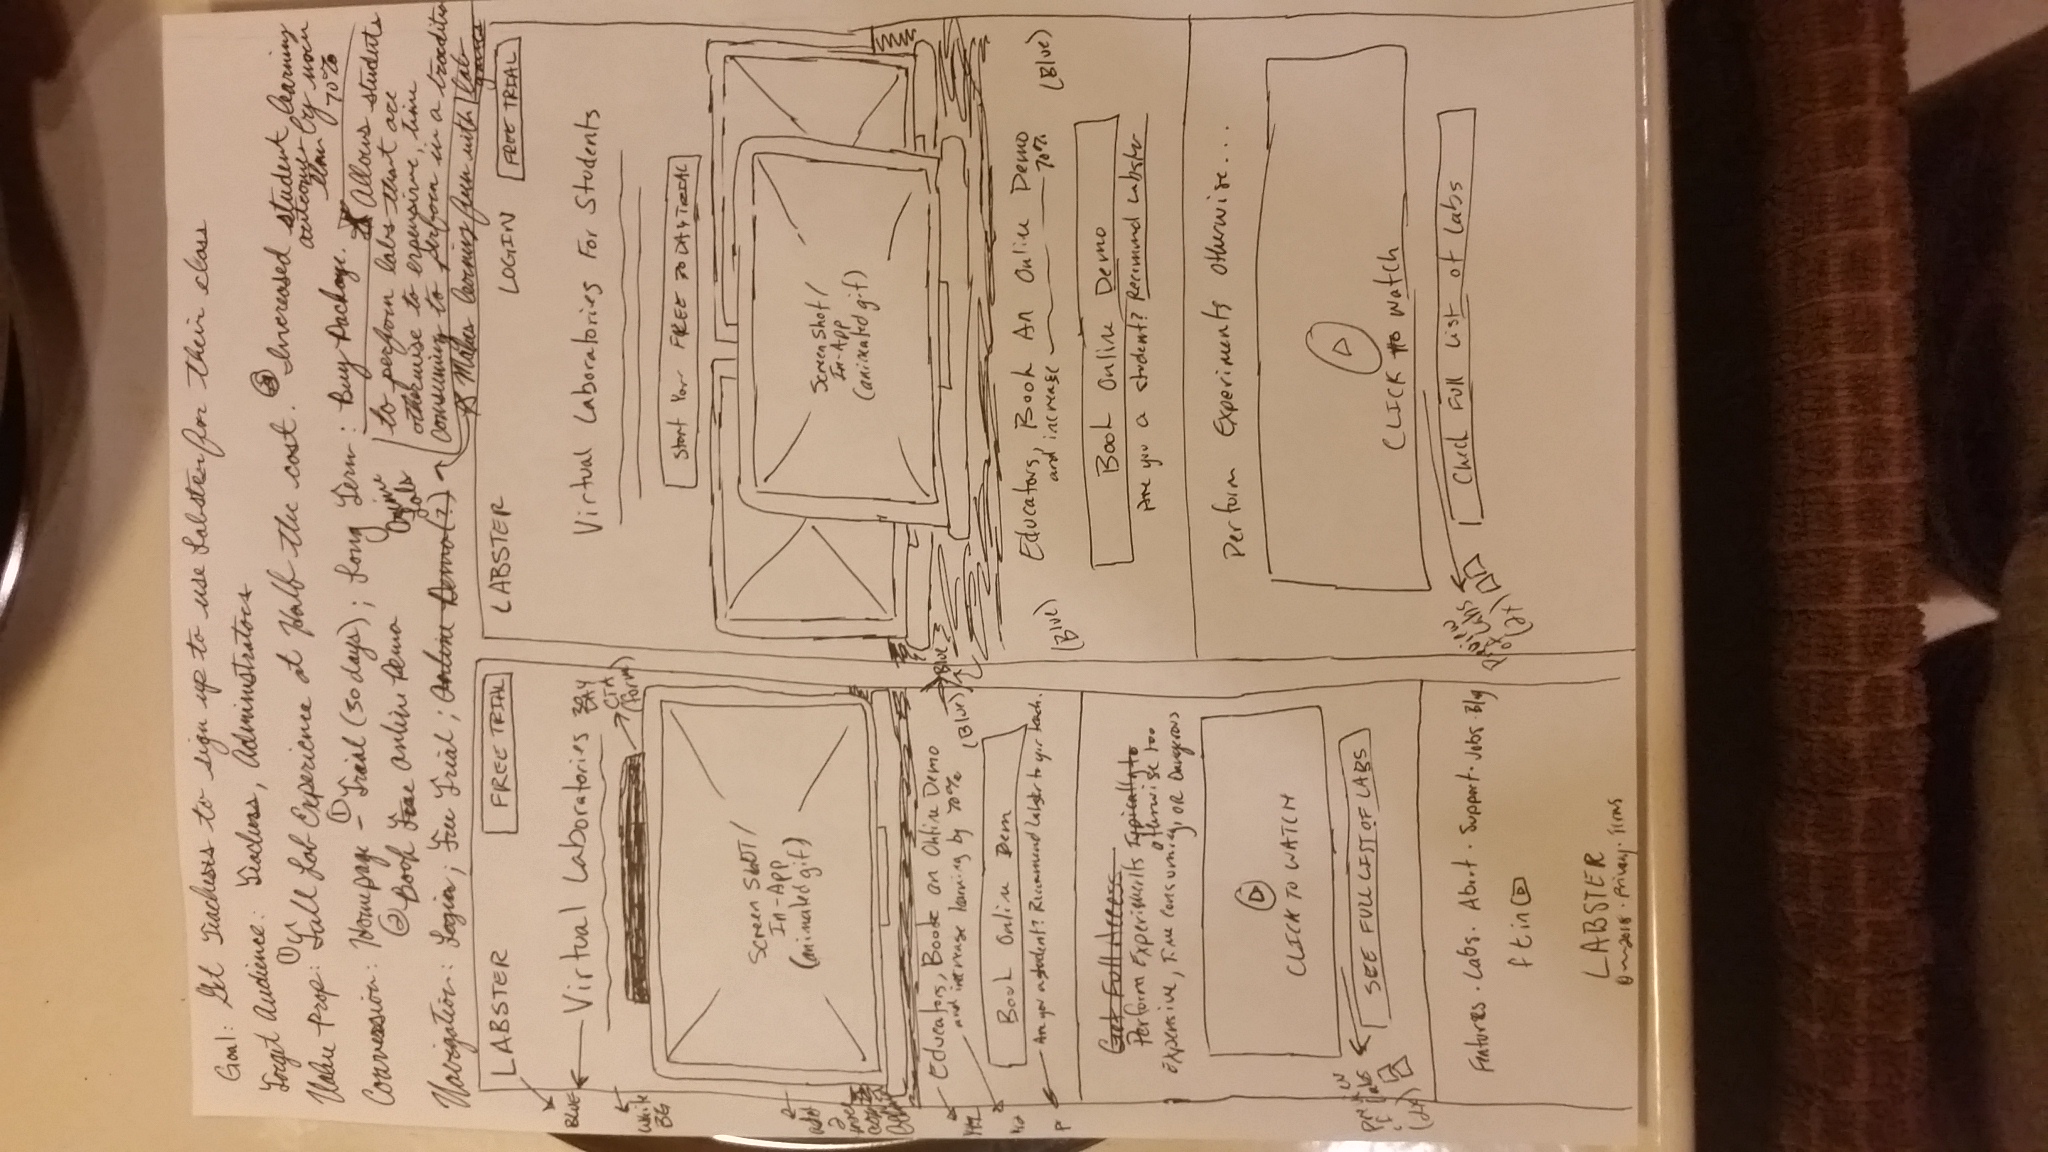 Goal: Get Teachers to sign up to use Labster for their class
Target Audience: Teachers, Administrators
Value Prop: ① Full Lab Experience at Half the cost. ③ Increased student learning
outcomes by
than
70%
Conversion: Homepage - ① Trial (30 days); Long Term: Buy Package.
② Book Free Online Demo
Allows students
to perform labs that are
otherwise to expensive, time
consuming to perform in a traditio
Makes learning fun with lab
games
Navigation: Login; Free Trial; Online Demo(?)
LABSTER
FREE TRIAL
BLUE
Virtual Laboratories
30
DAY
CTA
(form)
White
BG
Screen Shot /
In-App
(animated gif)
Educators, Book an Online Demo
and increase learning by 70%
(Blue)
Blue
H2
Book Online Dem
Are you a student? Recommend Labster to your teach.
P
Get Full Access
Perform Experiments Typically to
otherwise too
Expensive, Time consuming, OR Dangerous
CLICK TO WATCH
SEE FULL LIST OF LABS
Preview
of Labs
(2x)
Features · Labs · About · Support · Jobs · Blog
f t in
LABSTER
2018 · Privacy · Terms
LABSTER
LOGIN
FREE TRIAL
Virtual Laboratories For Students
Start Your FREE 30 DAY TRIAL
Screen Shot /
In-App
(animated gif)
Educators, Book An Online Demo
and increase
70%
(Blue)
(Blue)
Book Online Demo
Are you a student? Recommend Labster
Perform Experiments Otherwise...
CLICK to Watch
Check Full List of Labs
Preview
of Labs
(2x)